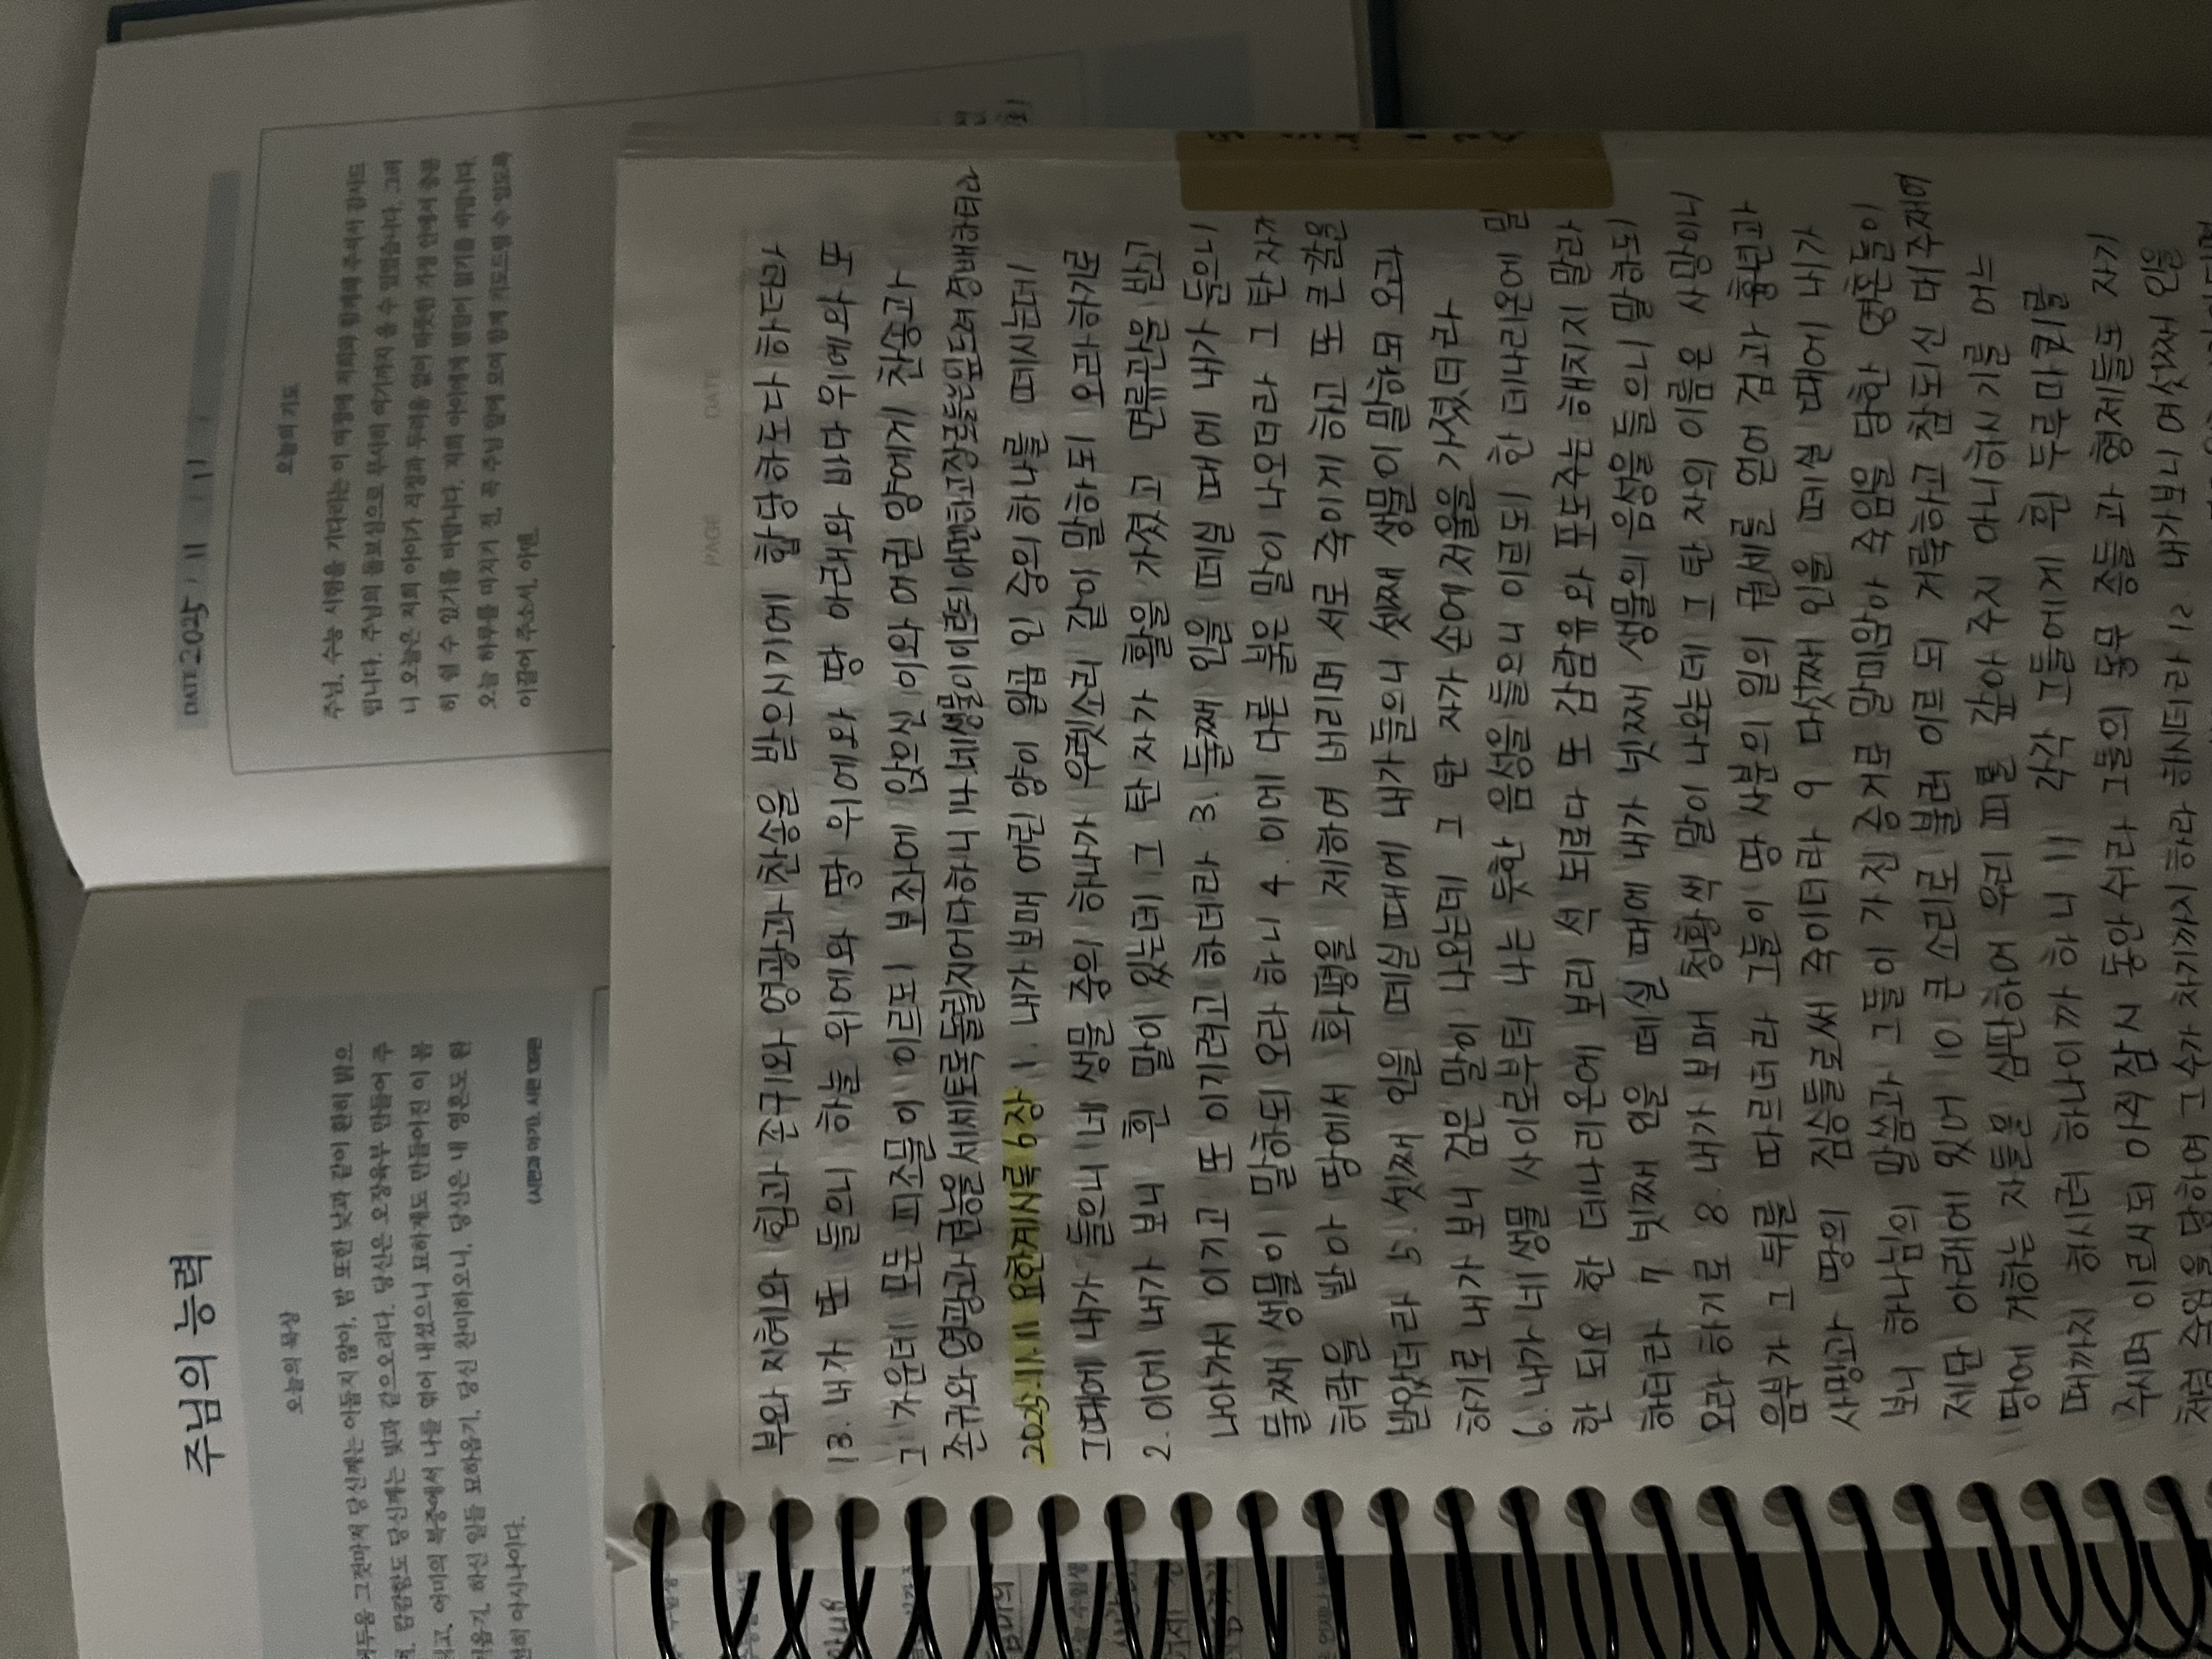 주님의 능력
오늘의 묵상
어두움 그것마저 당신께는 어둡지 않아, 밤 또한 낮과 같이 환히 밝으
며, 캄캄함도 당신께는 빛과 같으오리다. 당신은 오장육부 만들어 주
시고, 어미의 복중에서 나를 엮어 내셨으니 묘하게도 만들어진 이 몸
이옵기, 하신 일들 묘하옵기, 당신 찬미하오니, 당신은 내 영혼도 환
전히 아시나이다.
DATE 2025 / 11 / 11 /
오늘의 기도
주님, 수능 시험을 기다리는 이 여정에 저희와 함께해 주셔서 감사드
립니다. 주님의 돌보심으로 무사히 여기까지 올 수 있었습니다. 그러
니 오늘은 저희 아이가 걱정과 두려움 없이 따뜻한 가정 안에서 충분
히 쉴 수 있기를 바랍니다. 저희 아이에게 평범이 있기를 바랍니다.
오늘 하루를 마치기 전, 꼭 주님 앞에 모여 함께 기도드릴 수 있도록
이끌어 주소서. 아멘.
PAGE DATE
부와 지혜와 힘과 존귀와 영광과 찬송을 받으시기에 합당하도다 하더라
13. 내가 또 들으니 하늘 위에와 땅 위에와 땅 아래와 바다 위에와 또
그 가운데 모든 피조물이 이르되 보좌에 앉으신 이와 어린 양에게 찬송과
존귀와 영광과 권능을 세세토록 돌릴지어다 하니 14 네 생물이 이르되 아멘하고 장로들은 엎드려 경배하더라
2025.11.11 요한계시록 6장 1. 내가 보매 어린 양이 일곱 인 중의 하나를 떼시는데
그때에 내가 들으니 네 생물 중의 하나가 우렛소리 같이 말하되 오라 하기로
2. 이에 내가 보니 흰 말이 있는데 그 탄 자가 활을 가졌고 면류관을 받고
나아가서 이기고 또 이기려고 하더라 3. 둘째 인을 떼실 때에 내가 들으니
둘째 생물이 말하되 오라 하니 4. 이에 다른 붉은 말이 나오더라 그 탄 자가
허락을 받아 땅에서 화평을 제하여 버리며 서로 죽이게 하고 또 큰 칼을
받았더라 5. 셋째 인을 떼실 때에 내가 들으니 셋째 생물이 말하되 오라
하기로 내가 보니 검은 말이 나오는데 그 탄 자가 손에 저울을 가졌더라
6. 내가 네 생물 사이로부터 나는 듯한 음성을 들으니 이르되 한 데나리온에 밀
한 되요 한 데나리온에 보리 석 되로다 또 감람유와 포도주는 해치지 말라
하더라 7. 넷째 인을 떼실 때에 내가 넷째 생물의 음성을 들으니 말하되
오라 하기로 8. 내가 보매 청황색 말이 나오는데 그 탄 자의 이름은 사망이니
음부가 그 뒤를 따르더라 그들이 땅 사분의 일의 권세를 얻어 검과 흉년과
사망과 땅의 짐승들로써 죽이더라 9 다섯째 인을 떼실 때에 내가
보니 하나님의 말씀과 그들이 가진 증거로 말미암아 죽임을 당한 영혼들이
제단 아래에 있어 10 큰 소리로 불러 이르되 거룩하고 참되신 대주재여
땅에 거하는 자들을 심판하여 우리 피를 갚아 주지 아니하시기를 어느
때까지 하시려 하나이까 하니 11 각각 그들에게 흰 두루마기를
주시며 이르시되 아직 잠시 동안 쉬라 그들의 동무 종들과 형제들도 자기
처럼 죽임을 당하여 그 수가 차기까지 하라 하시더라 12 내가 보니 여섯째 인을